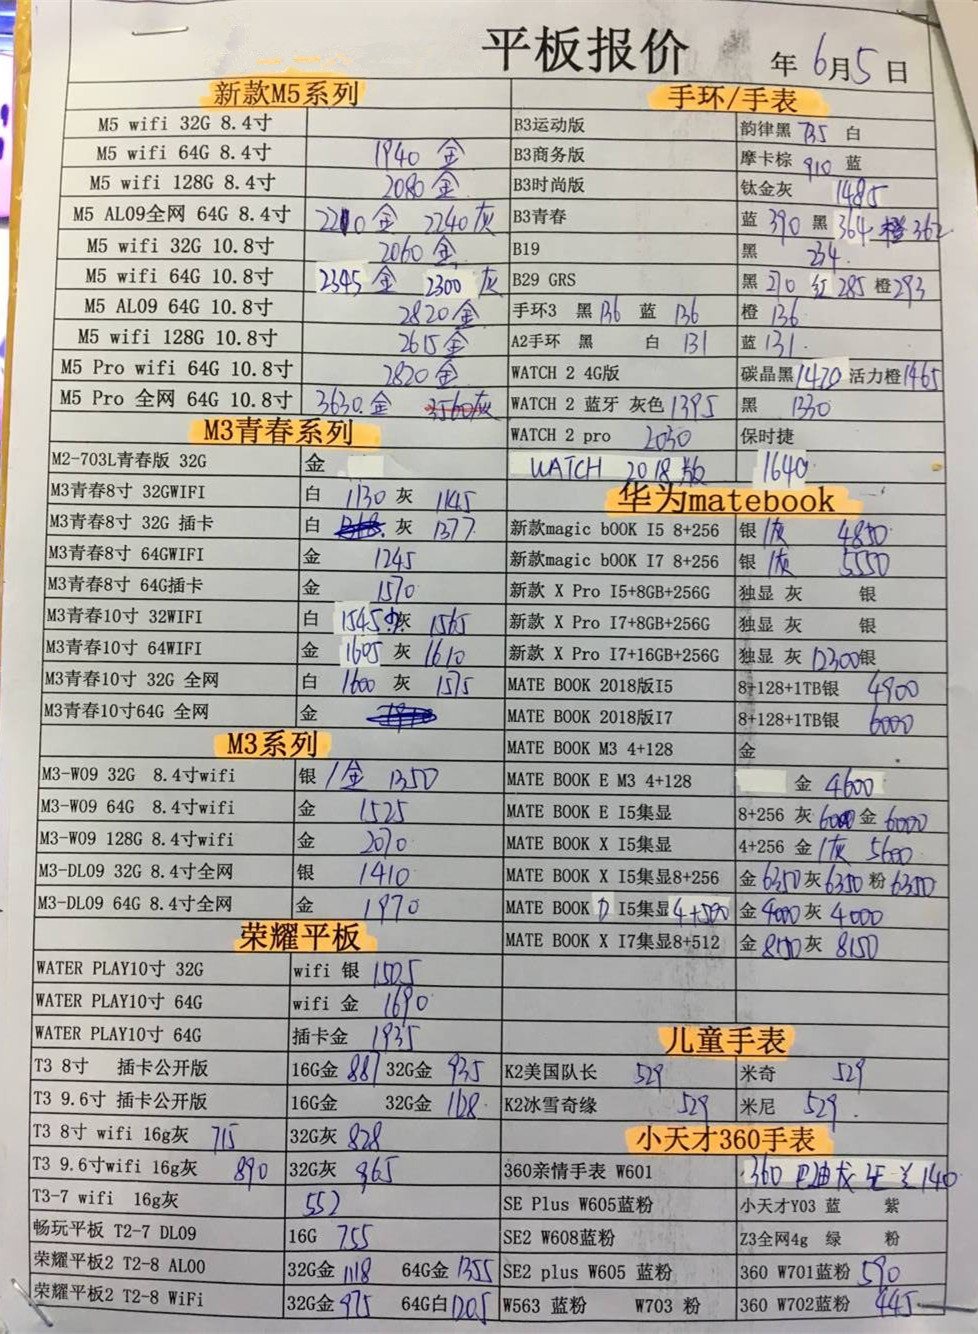 平板报价 年 6月5日
新款M5系列
M5 wifi 32G 8.4寸
M5 wifi 64G 8.4寸 1940 金
M5 wifi 128G 8.4寸 2080 金
M5 AL09全网 64G 8.4寸 金 2240 灰
M5 wifi 32G 10.8寸 2060 金
M5 wifi 64G 10.8寸 2345 金 2300 灰
M5 AL09 64G 10.8寸 2820 金
M5 wifi 128G 10.8寸 2615 金
M5 Pro wifi 64G 10.8寸 2820 金
M5 Pro 全网 64G 10.8寸 3630 金 3560 灰
M3青春系列
M2-703L青春版 32G 金
M3青春8寸 32GWIFI 白 1130 灰 1145
M3青春8寸 32G 插卡 白 灰 1377
M3青春8寸 64GWIFI 金 1245
M3青春8寸 64G插卡 金 1570
M3青春10寸 32WIFI 白 1545 灰 1565
M3青春10寸 64WIFI 金 1605 灰 1610
M3青春10寸 32G 全网 白 1600 灰 1575
M3青春10寸64G 全网 金
M3系列
M3-W09 32G 8.4寸wifi 银/金 1350
M3-W09 64G 8.4寸wifi 金 1525
M3-W09 128G 8.4寸wifi 金 2070
M3-DL09 32G 8.4寸全网 银 1410
M3-DL09 64G 8.4寸全网 金 1970
荣耀平板
WATER PLAY10寸 32G wifi 银 1505
WATER PLAY10寸 64G wifi 金 1690
WATER PLAY10寸 64G 插卡金 1935
T3 8寸 插卡公开版 16G金 881 32G金 935
T3 9.6寸 插卡公开版 16G金 32G金 1108
T3 8寸 wifi 16g灰 715 32G灰 828
T3 9.6寸wifi 16g灰 890 32G灰 965
T3-7 wifi 16g灰 552
畅玩平板 T2-7 DL09 16G 755
荣耀平板2 T2-8 AL00 32G金 1118 64G金 1355
荣耀平板2 T2-8 WiFi 32G金 975 64G白 1205
手环/手表
B3运动版 韵律黑 735 白
B3商务版 摩卡棕 910 蓝
B3时尚版 钛金灰 1485
B3青春 蓝 390 黑 364 橙 362
B19 黑 234
B29 GRS 黑 270 红 285 橙 293
手环3 黑 136 蓝 136 橙 136
A2手环 黑 白 131 蓝 131
WATCH 2 4G版 碳晶黑 1420 活力橙 1465
WATCH 2 蓝牙 灰色 1395 黑 1330
WATCH 2 pro 2030 保时捷
WATCH 2018版 1640
华为matebook
新款magic bOOK I5 8+256 银/灰 4850
新款magic bOOK I7 8+256 银/灰 5550
新款 X Pro I5+8GB+256G 独显 灰 银
新款 X Pro I7+8GB+256G 独显 灰 银
新款 X Pro I7+16GB+256G 独显 灰 12300 银
MATE BOOK 2018版I5 8+128+1TB银 4900
MATE BOOK 2018版I7 8+128+1TB银 6000
MATE BOOK M3 4+128 金
MATE BOOK E M3 4+128 金 4600
MATE BOOK E I5集显 8+256 灰 6000 金 6000
MATE BOOK X I5集显 4+256 金/灰 5600
MATE BOOK X I5集显8+256 金 6350 灰 6350 粉 6350
MATE BOOK D I5集显4+500 金 4000 灰 4000
MATE BOOK X I7集显8+512 金 8150 灰 8150
儿童手表
K2美国队长 529 米奇 529
K2冰雪奇缘 529 米尼 529
小天才360手表
360亲情手表 W601 360 巴迪龙 140
SE Plus W605蓝粉 小天才Y03 蓝 紫
SE2 W608蓝粉 Z3全网4g 绿 粉
SE2 plus W605 蓝粉 360 W701蓝粉 590
W563 蓝粉 W703 粉 360 W702蓝粉 445